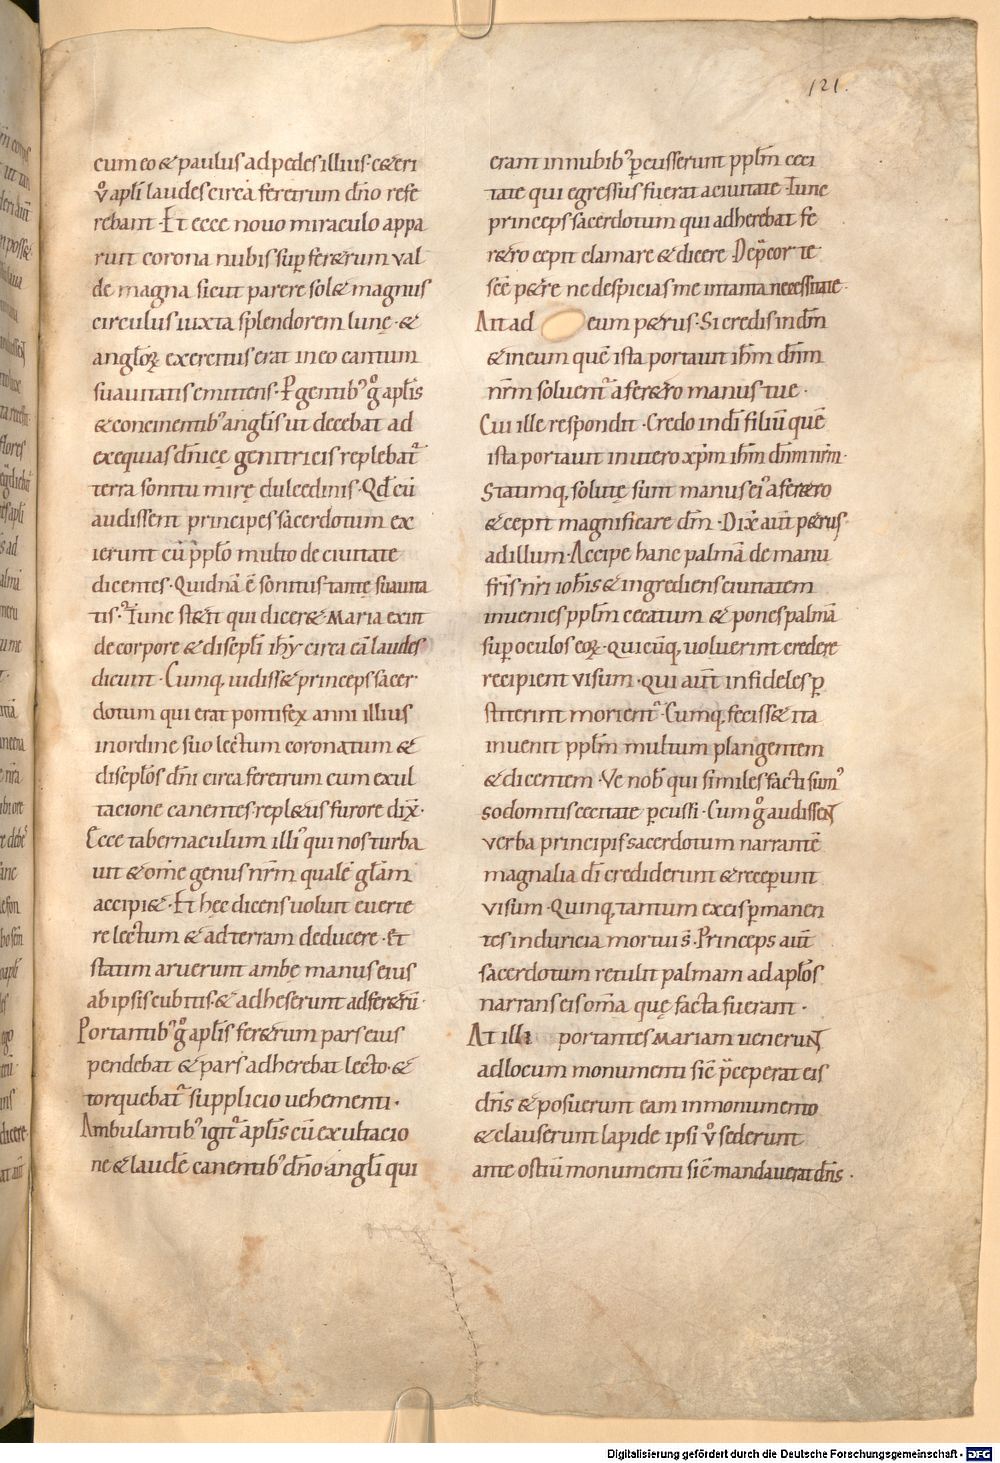 121.
cum eo & paulus ad pedes illius · c&eri
v̊ apl̄i laudes circa feretrum dn̄o refe
rebant · Et ecce nouo miraculo appa
ruit corona nubis sup̲ fer&rum val
de magna sicut parere sol& magnus
circulus iuxta splendorem lunę · &
angl̄oꝝ exercitus erat in eo cantum
suauitatis emittens · P̱gentib⁹ g̊ apl̄is
& concinentib⁹ angl̄is ut decebat ad
exequias dn̄icę genitricis replebat᷑
terra sonitu mirę dulcedinis · Qd̄ cū
audissent principes sacerdotum ex
ierunt cū pp̄lo multo de ciuitate
dicentes · Quidnā ē sonitus tantę suauita
tis · Tunc st&it qui dicer& Maria exiit
de corpore & discipl̄i ih̄u circa eā laudes
dicunt · Cumq, uidiss& princeps sacer·
dotum qui erat pontifex anni illius
in ordine suo lectum coronatum &
discipl̄os dn̄i circa feretrum cum exul
tacione canentes · repl&us furore dix̄ ·
Ecce tabernaculum illi⁹ qui nos turba
uit & om̄e genus nr̄m qualē gl̄am
accipi& · Et hęc dicens uoluit euerte
re lectum & ad terram deducere · Et
statim aruerunt ambę manus eius
ab ipsis cubitis · & adheserunt ad fer&rū ·
Portantib⁹ g̊ apl̄is fer&rum pars eius
pendebat & pars adherebat lecto · &
torquebat᷑ supplicio uehementi ·
Ambulantib⁹ igit᷑ apl̄is cū exultacio
ne & laude canentib⁹ dn̄o · angl̄i qui
erant in nubib⁹ p̲cusserunt pp̄lm ceci
tate qui egressus fuerat a ciuitate · Tunc
princeps sacerdotum qui adherebat fe
r&ro cepit clamare & dicere Dep̄cor te
scē p&re ne despicias me in tanta necessitate ·
Ait ad eum p&rus · Si credis in dm̄
& in eum quē ista portauit ih̄m dn̄m
nr̄m soluent᷑ a fer&ro manus tue ·
Cui ille respondit · Credo in dī filiū quē
ista portauit in utero xp̄m ih̄m dn̄m nr̄m ·
Statimq, solutę sunt manus ei⁹ a fer&ro
& cepit magnificare dm̄ · Dix̄ aut̄ p&rus
ad illum · Accipe hanc palmā de manu
fr̄is nr̄i ioh̄is & ingrediens ciuitatem
inuenies pp̄lm cecatum & pones palmā
sup̲ oculos eoꝝ · Quicūq, uoluerint credere
recipient visum · Qui aut̄ infideles p̲
stiterint morient᷑ · Cumq, feciss& ita
inuenit pp̄lm multum plangentem
& dicentem · Ve nob̄ qui similes facti sum⁹
sodomitis cecitate p̲cussi · Cum g̊ audissent
verba principis sacerdotum narrantē
magnalia dī crediderunt & recep̲unt
visum · Quinq, tantum ex eis p̲manen
tes in duricia mortui s̄ · Princeps aut̄
sacerdotum retulit palmam ad apl̄os
narrans eis om̄a quę facta fuerant ·
At illi portantes Mariam uenerunt
ad locum monumenti sic̄ p̄ceperat eis
dn̄s & posuerunt eam in monumento
& clauserunt lapide ipsi v̊ sederunt
ante ostiū monumenti sic̄ mandauerat dn̄s ·
Digitalisierung gefördert durch die Deutsche Forschungsgemeinschaft - DFG